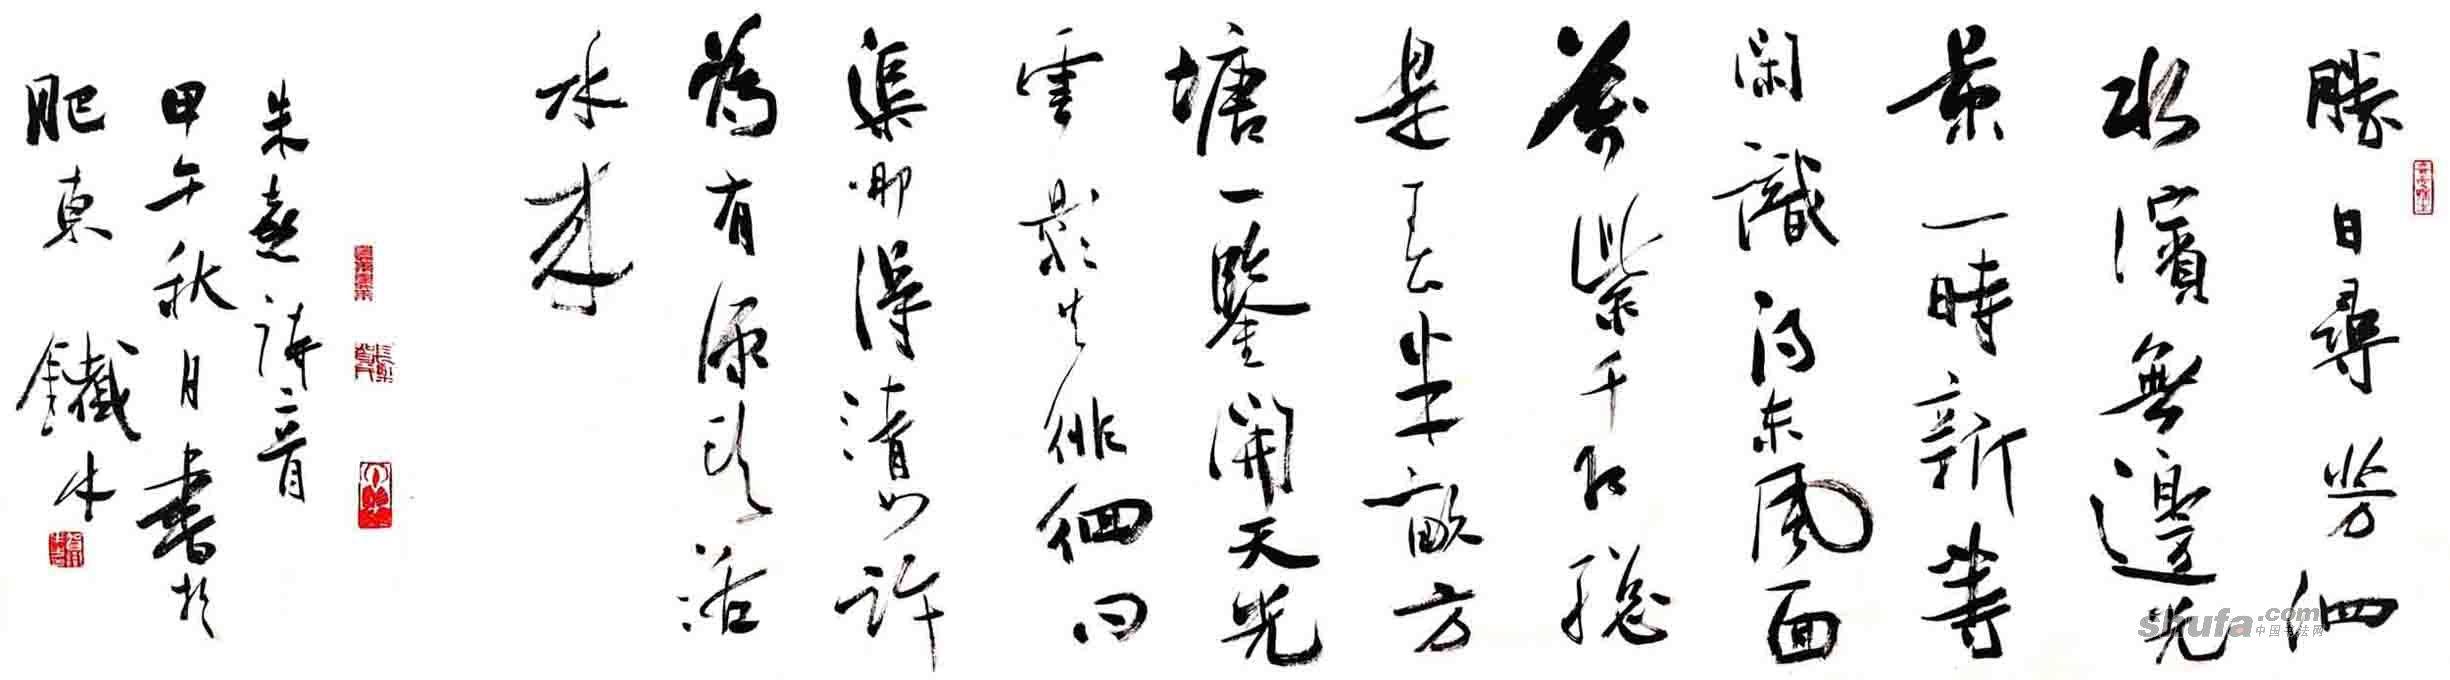 勝日尋芳泗
水濱無邊光
景一時新等
閑識得东風面
萬紫千红總
是春半畝方
塘一鑒開天光
雲影共徘徊问
渠那得清如許
為有源頭活
水来
朱熹詩二首
甲午秋月書於
肥東 鐵牛
shufa.com
中国书法网